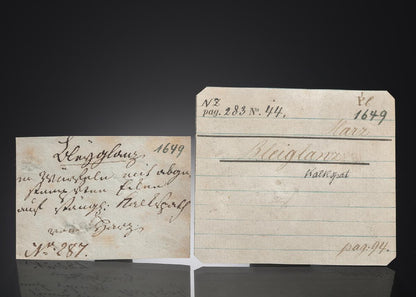 Bleyglanz 1649
in Würfeln mit abge
stumpften Ecken
auf kängl. Kalkspath
vom Harz
No 287.
NZ
pag. 283 No. 44.
1649
Harz
Bleiglanz
Kalkspat
pag. 94.